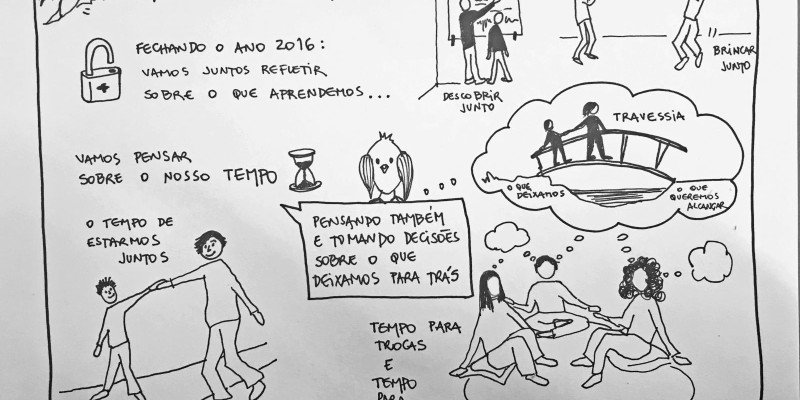 FECHANDO O ANO 2016:
VAMOS JUNTOS REFLETIR
SOBRE O QUE APRENDEMOS...
DESCOBRIR
JUNTO
BRINCAR
JUNTO
VAMOS PENSAR
SOBRE O NOSSO TEMPO
TRAVESSIA
O QUE
DEIXAMOS
O QUE
QUEREMOS
ALCANÇAR
O TEMPO DE
ESTARMOS
JUNTOS
PENSANDO TAMBÉM
E TOMANDO DECISÕES
SOBRE O QUE
DEIXAMOS PARA TRÁS
TEMPO PARA
TROCAS
E
TEMPO
PARA